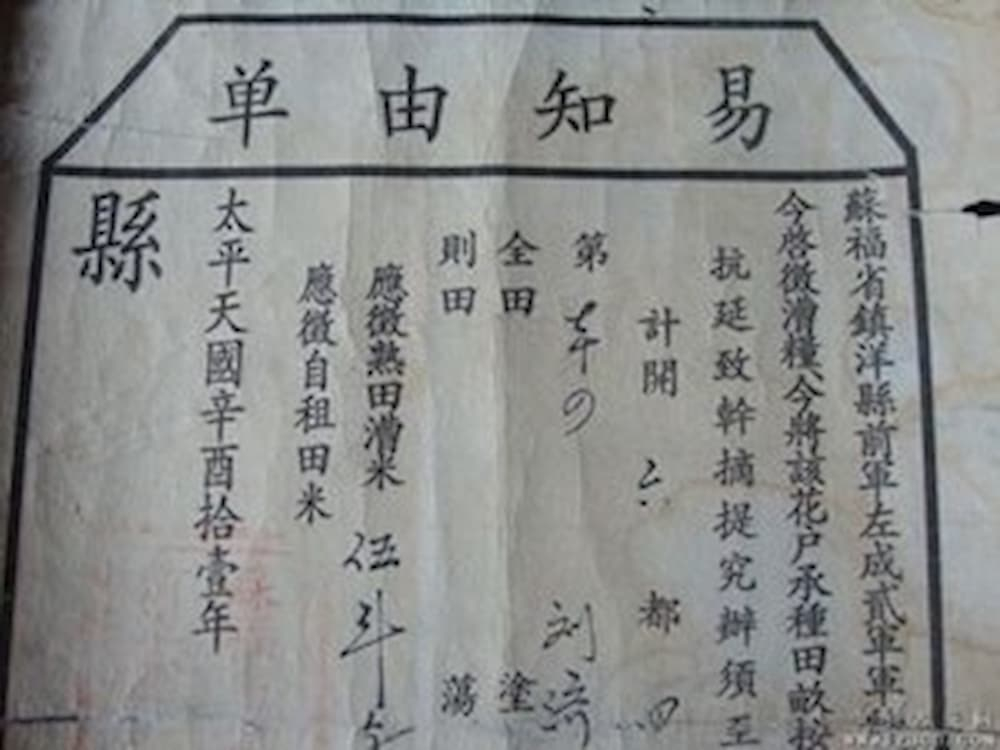 易知由单
蘇福省鎮洋縣前軍左成貳軍軍
今啓徵漕糧今將該花戶承種田畝按
抗延致幹摘提究辦須至
計開 六 都
第
全田 塗
則田 蕩
應徵熟田漕米 伍斗
應徵自租田米
太平天國辛酉拾壹年
縣